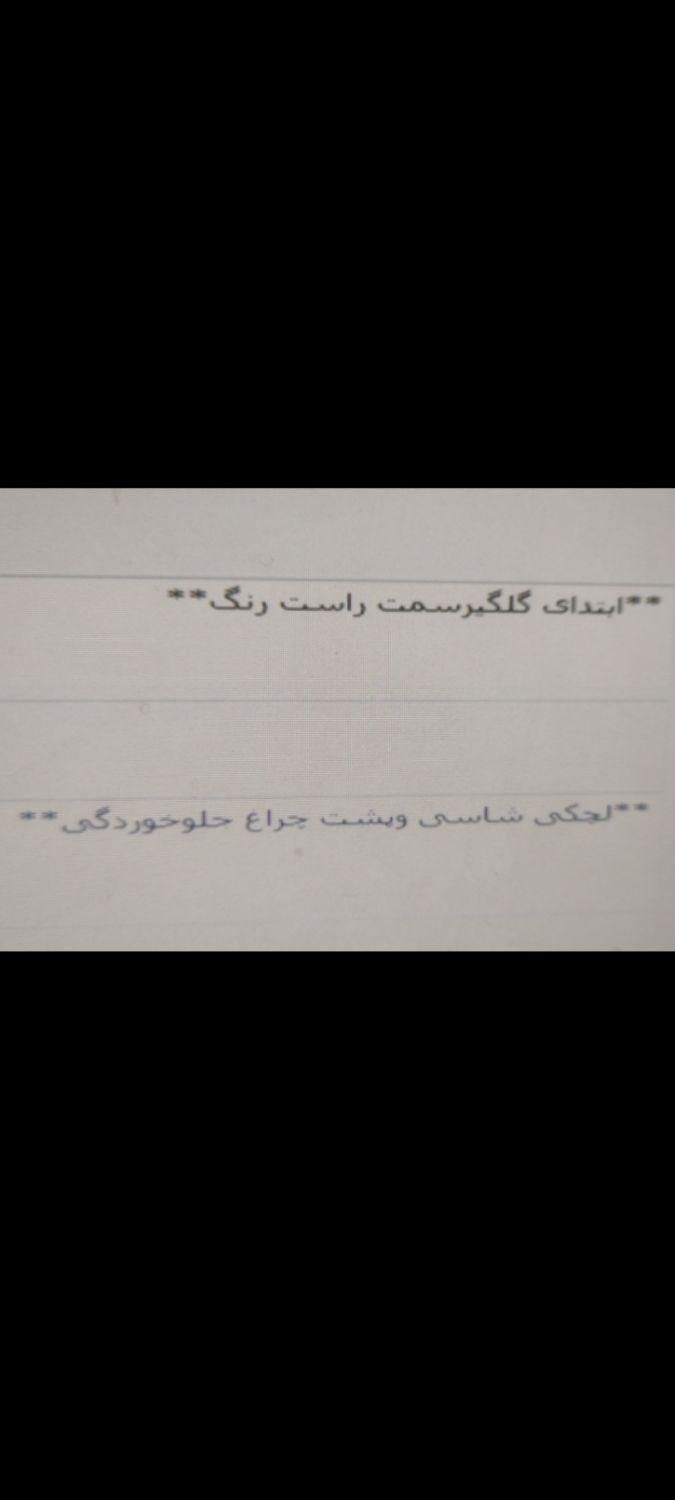 **ابتدای گلگیرسمت راست رنگ**
**لچکی شاسی وپشت چراغ جلوخوردگی**